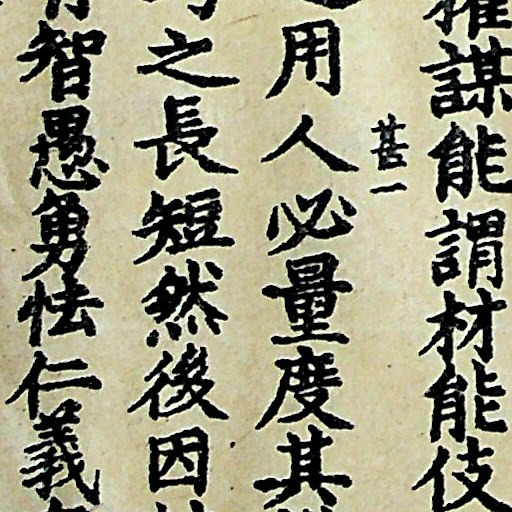 權謀能謂材能伎
甚一
用人必量度其
之長短然後因
智愚勇怯仁義